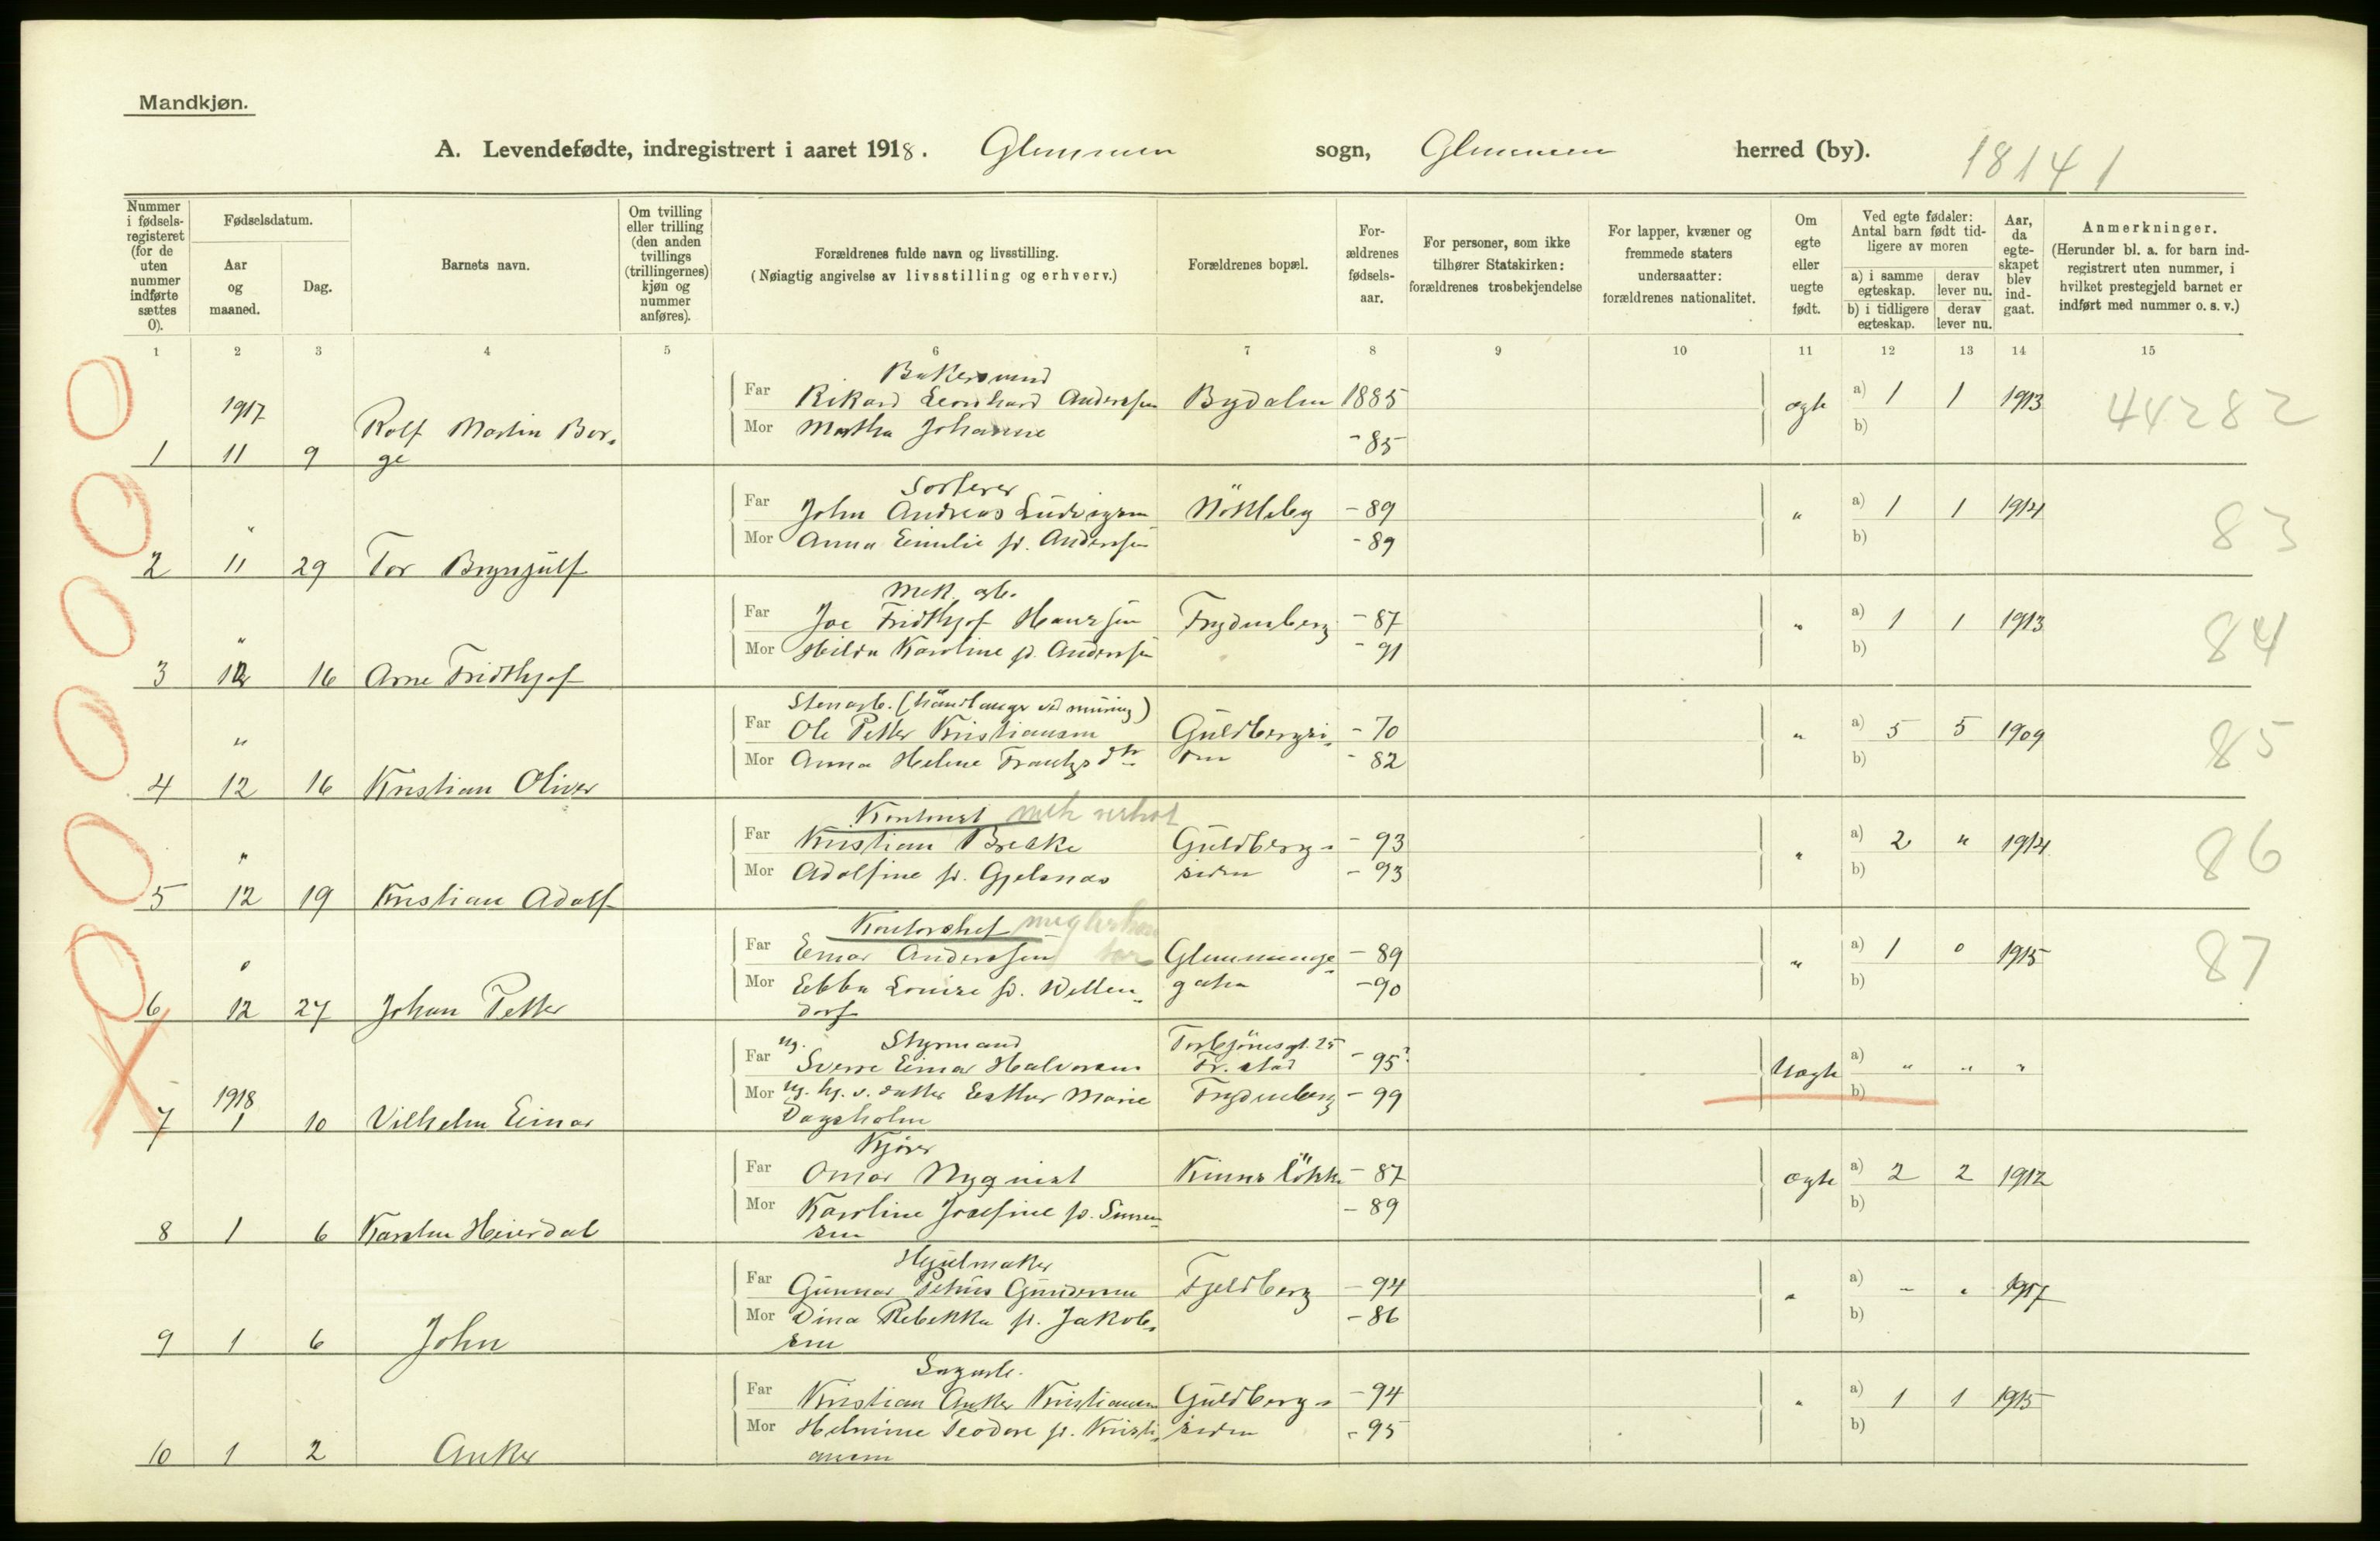 Mandkjøn.
A. Levendefødte, indregistrert i aaret 1918. Glemmen sogn, Glemmen herred (by). 18141
Nummer i fødsels-registeret (for de uten nummer indførte sættes 0).
Fødselsdatum.
Aar og maaned.
Dag.
Barnets navn.
Om tvilling eller trilling (den anden tvillings (trillingernes) kjøn og nummer anføres).
Forældrenes fulde navn og livsstilling.
(Nøiagtig angivelse av livsstilling og erhverv.)
Forældrenes bopæl.
For-ældrenes fødsels-aar.
For personer, som ikke tilhører Statskirken: forældrenes trosbekjendelse
For lapper, kvæner og fremmede staters undersaatter: forældrenes nationalitet.
Om egte eller uegte født.
Ved egte fødsler: Antal barn født tid-ligere av moren
a) i samme egteskap. derav lever nu.
b) i tidligere egteskap. derav lever nu.
Aar, da egte-skapet blev ind-gaat.
Anmerkninger.
(Herunder bl. a. for barn ind-registrert uten nummer, i hvilket prestegjeld barnet er indført med nummer o. s. v.)
1 2 3 4 5 6 7 8 9 10 11 12 13 14 15
Bakersvend
1917 Far Rikard Leonhard Anderssen Bydalen 1885 ægte a) 1 1 1913 44282
Rolf Martin Bor- Mor Martha Johanne - 85 b)
1 11 9 ge
Sorterer
" Far John Andreas Ludvigsen - 89 " a) 1 1 1914 83
Mor Anna Emilie f. Anderssen - 89 b)
2 11 29 Tor Brynjulf
Mek. arb.
" Far Fridthjof Hanssen Frydenberg - 87 " a) 1 1 1913 84
Mor Hilda Karoline f. Anderssen - 91 b)
3 12 16 Arne Fridthjof
Stenarb. (håndlanger ved muring)
" Far Ole Petter Kristiansen Guldbergsi- - 70 " a) 5 5 1909 85
Mor Anna Helene Frantzdtr. den - 82 b)
4 12 16 Kristian Oliver
Kontorist mek verkst
" Far Kristian Brekke Guldbergs- - 93 " a) 2 " 1914 86
Mor Adolfine f. Gjelsnes siden - 93 b)
5 12 19 Kristian Adolf
Kontorchef meglerkon
" Far Einar Anderssen tor Glemminge- - 89 " a) 1 0 1915 87
Mor Ebba Louise f. Wellen- gaten - 90 b)
6 12 27 Johan Petter dorf
ug. Styrmand Torbjörnsgt. 25
Far Sverre Einar Halvorsen Fr.stad - 95? Uægte a) " " "
1918 Mor ug. hj. v. datter Esther Marie Frydenberg - 99 b)
7 1 10 Vilhelm Einar Dagsholm
Kjører
Far Omar Nyquist - 87 ægte a) 2 2 1912
Mor Karoline Josefine f. Simen- - 89 b)
8 1 6 Karsten Heierdal sen
Hjulmaker
Far Gunnar Petrus Gundersen Fjeldberg - 94 " a) - " 1917
Mor Dina Rebekka f. Jakob- - 86 b)
9 1 6 John sen
Sagarb.
Far Kristian Anker Kristiansen Guldbergs- - 94 " a) 1 1 1915
Mor Helmine Teodore f. Kristi- siden - 95 b)
10 1 2 Anker ansen